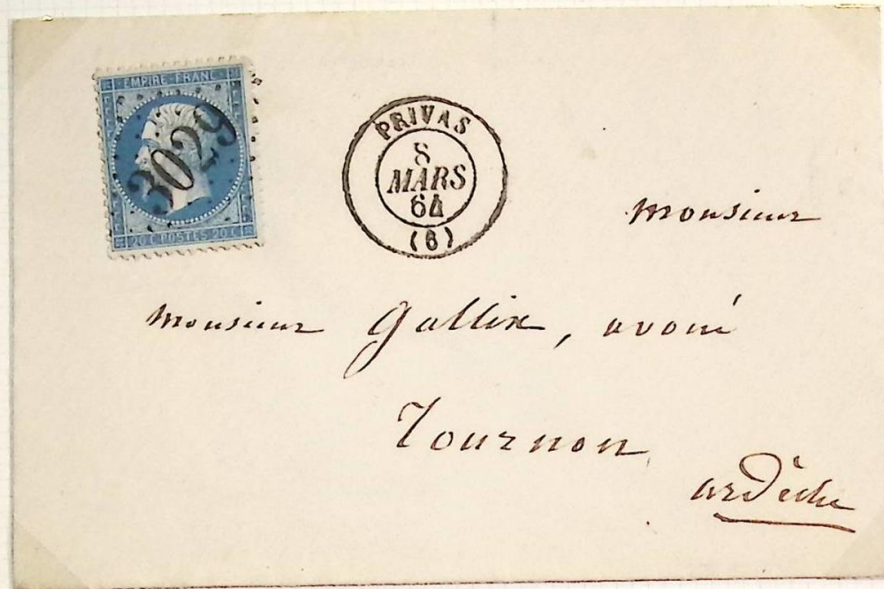 EMPIRE FRANC
3029
20 C POSTES 20 C
PRIVAS
8
MARS
64
(6)
Monsieur
Monsieur Gallix, avoué
Tournon
ardèche